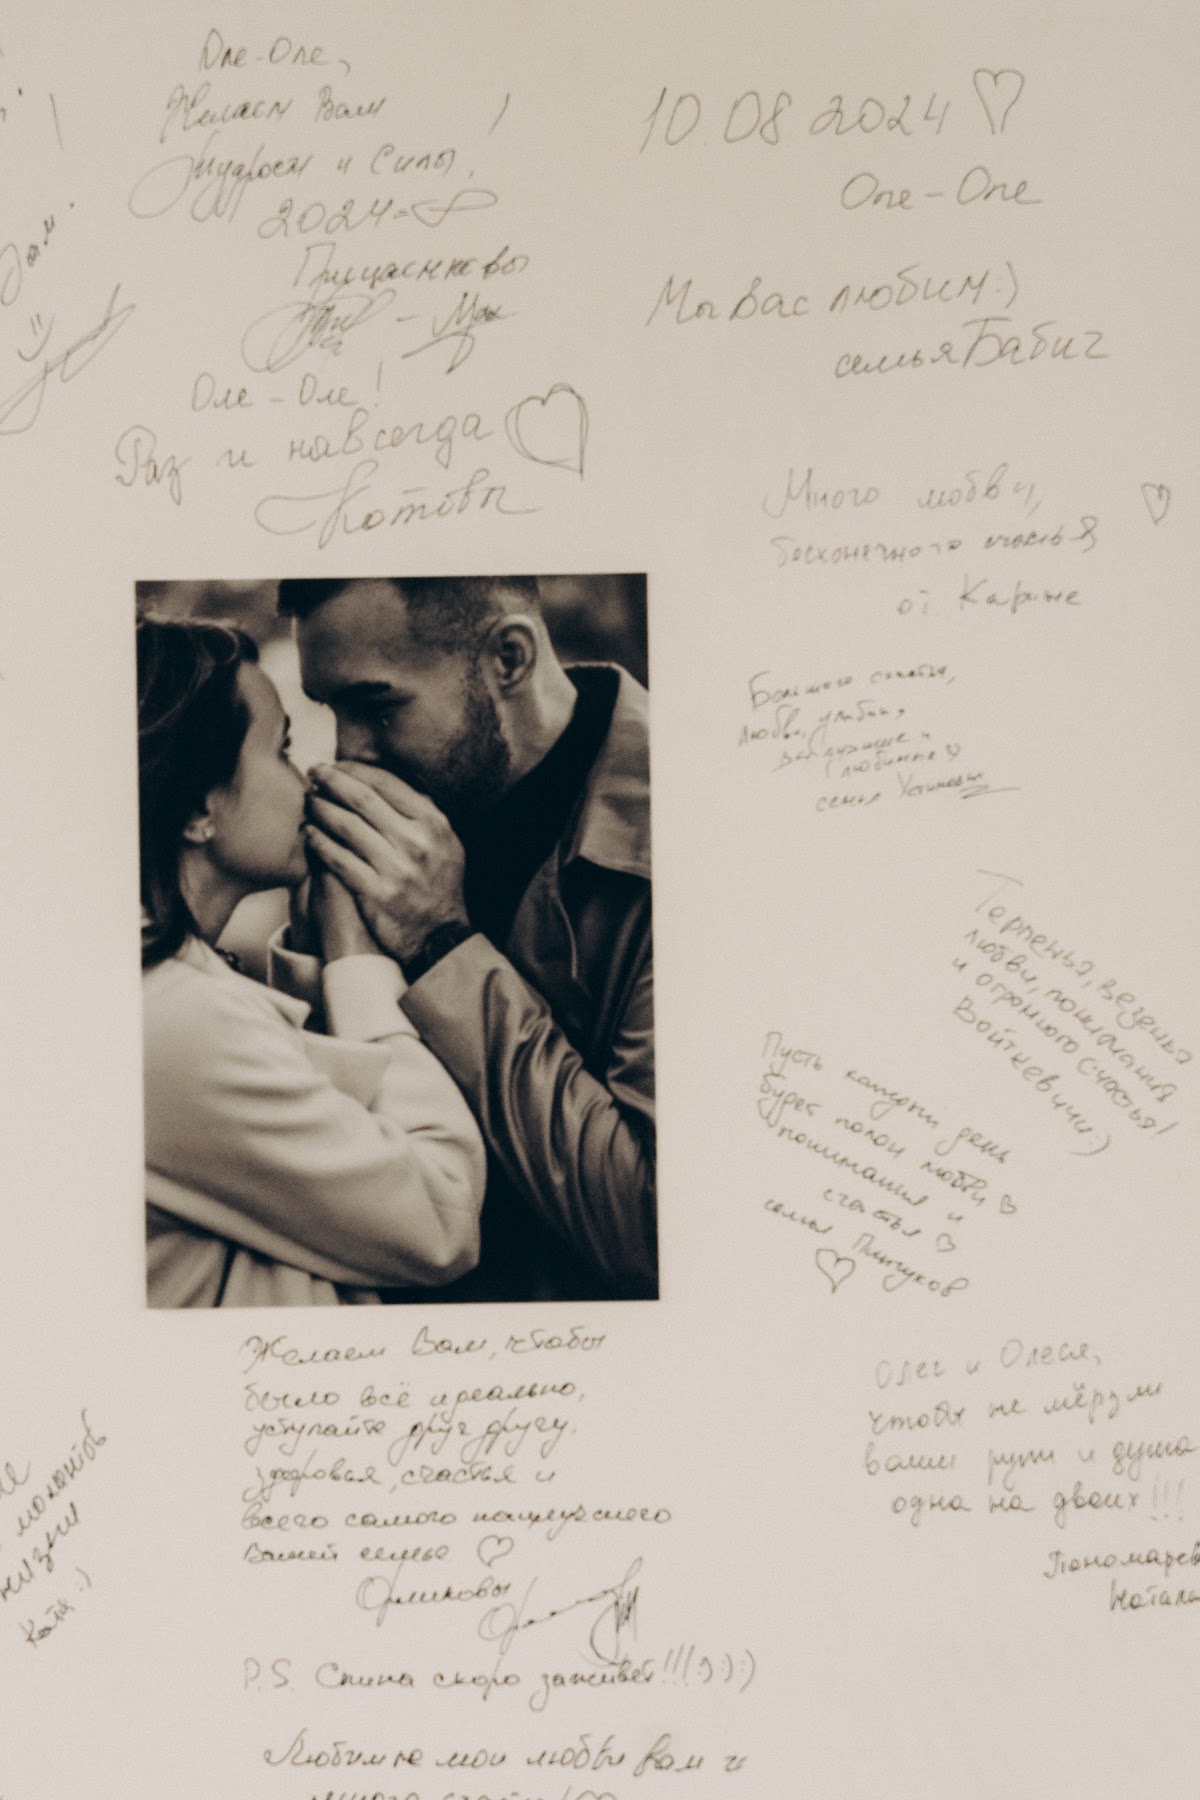 Оле-Оле,
Желаем Вам
Мудрости и Силы.
2024-∞
Оле-Оле!
Раз и навсегда
Котовы
10.08 2024
Оле-Оле
Мы Вас любим:)
семья Бабич
Много любви,
бесконечного счастья
от Карине
Большого счастья,
любви,
любимые
семья
Терпенья, везенья
любви, понимания
и огромного счастья!
Войткевичи:)
Пусть каждый день
будет полон любви
понимания и
счастья
семья Пинчуков
Желаем Вам, чтобы
было всё идеально,
уступайте друг другу.
здоровья, счастья и
всего самого наилучшего
Вашей семье
P.S. Спина скоро заживёт!!!:):):)
Любимые мои любви вам и
много
Олег и Олеся,
чтобы не мёрзли
ваши руки и душа
одна на двоих!!!
Пономарев
Наталь
Вам.
моментов
жизни
Катя:)